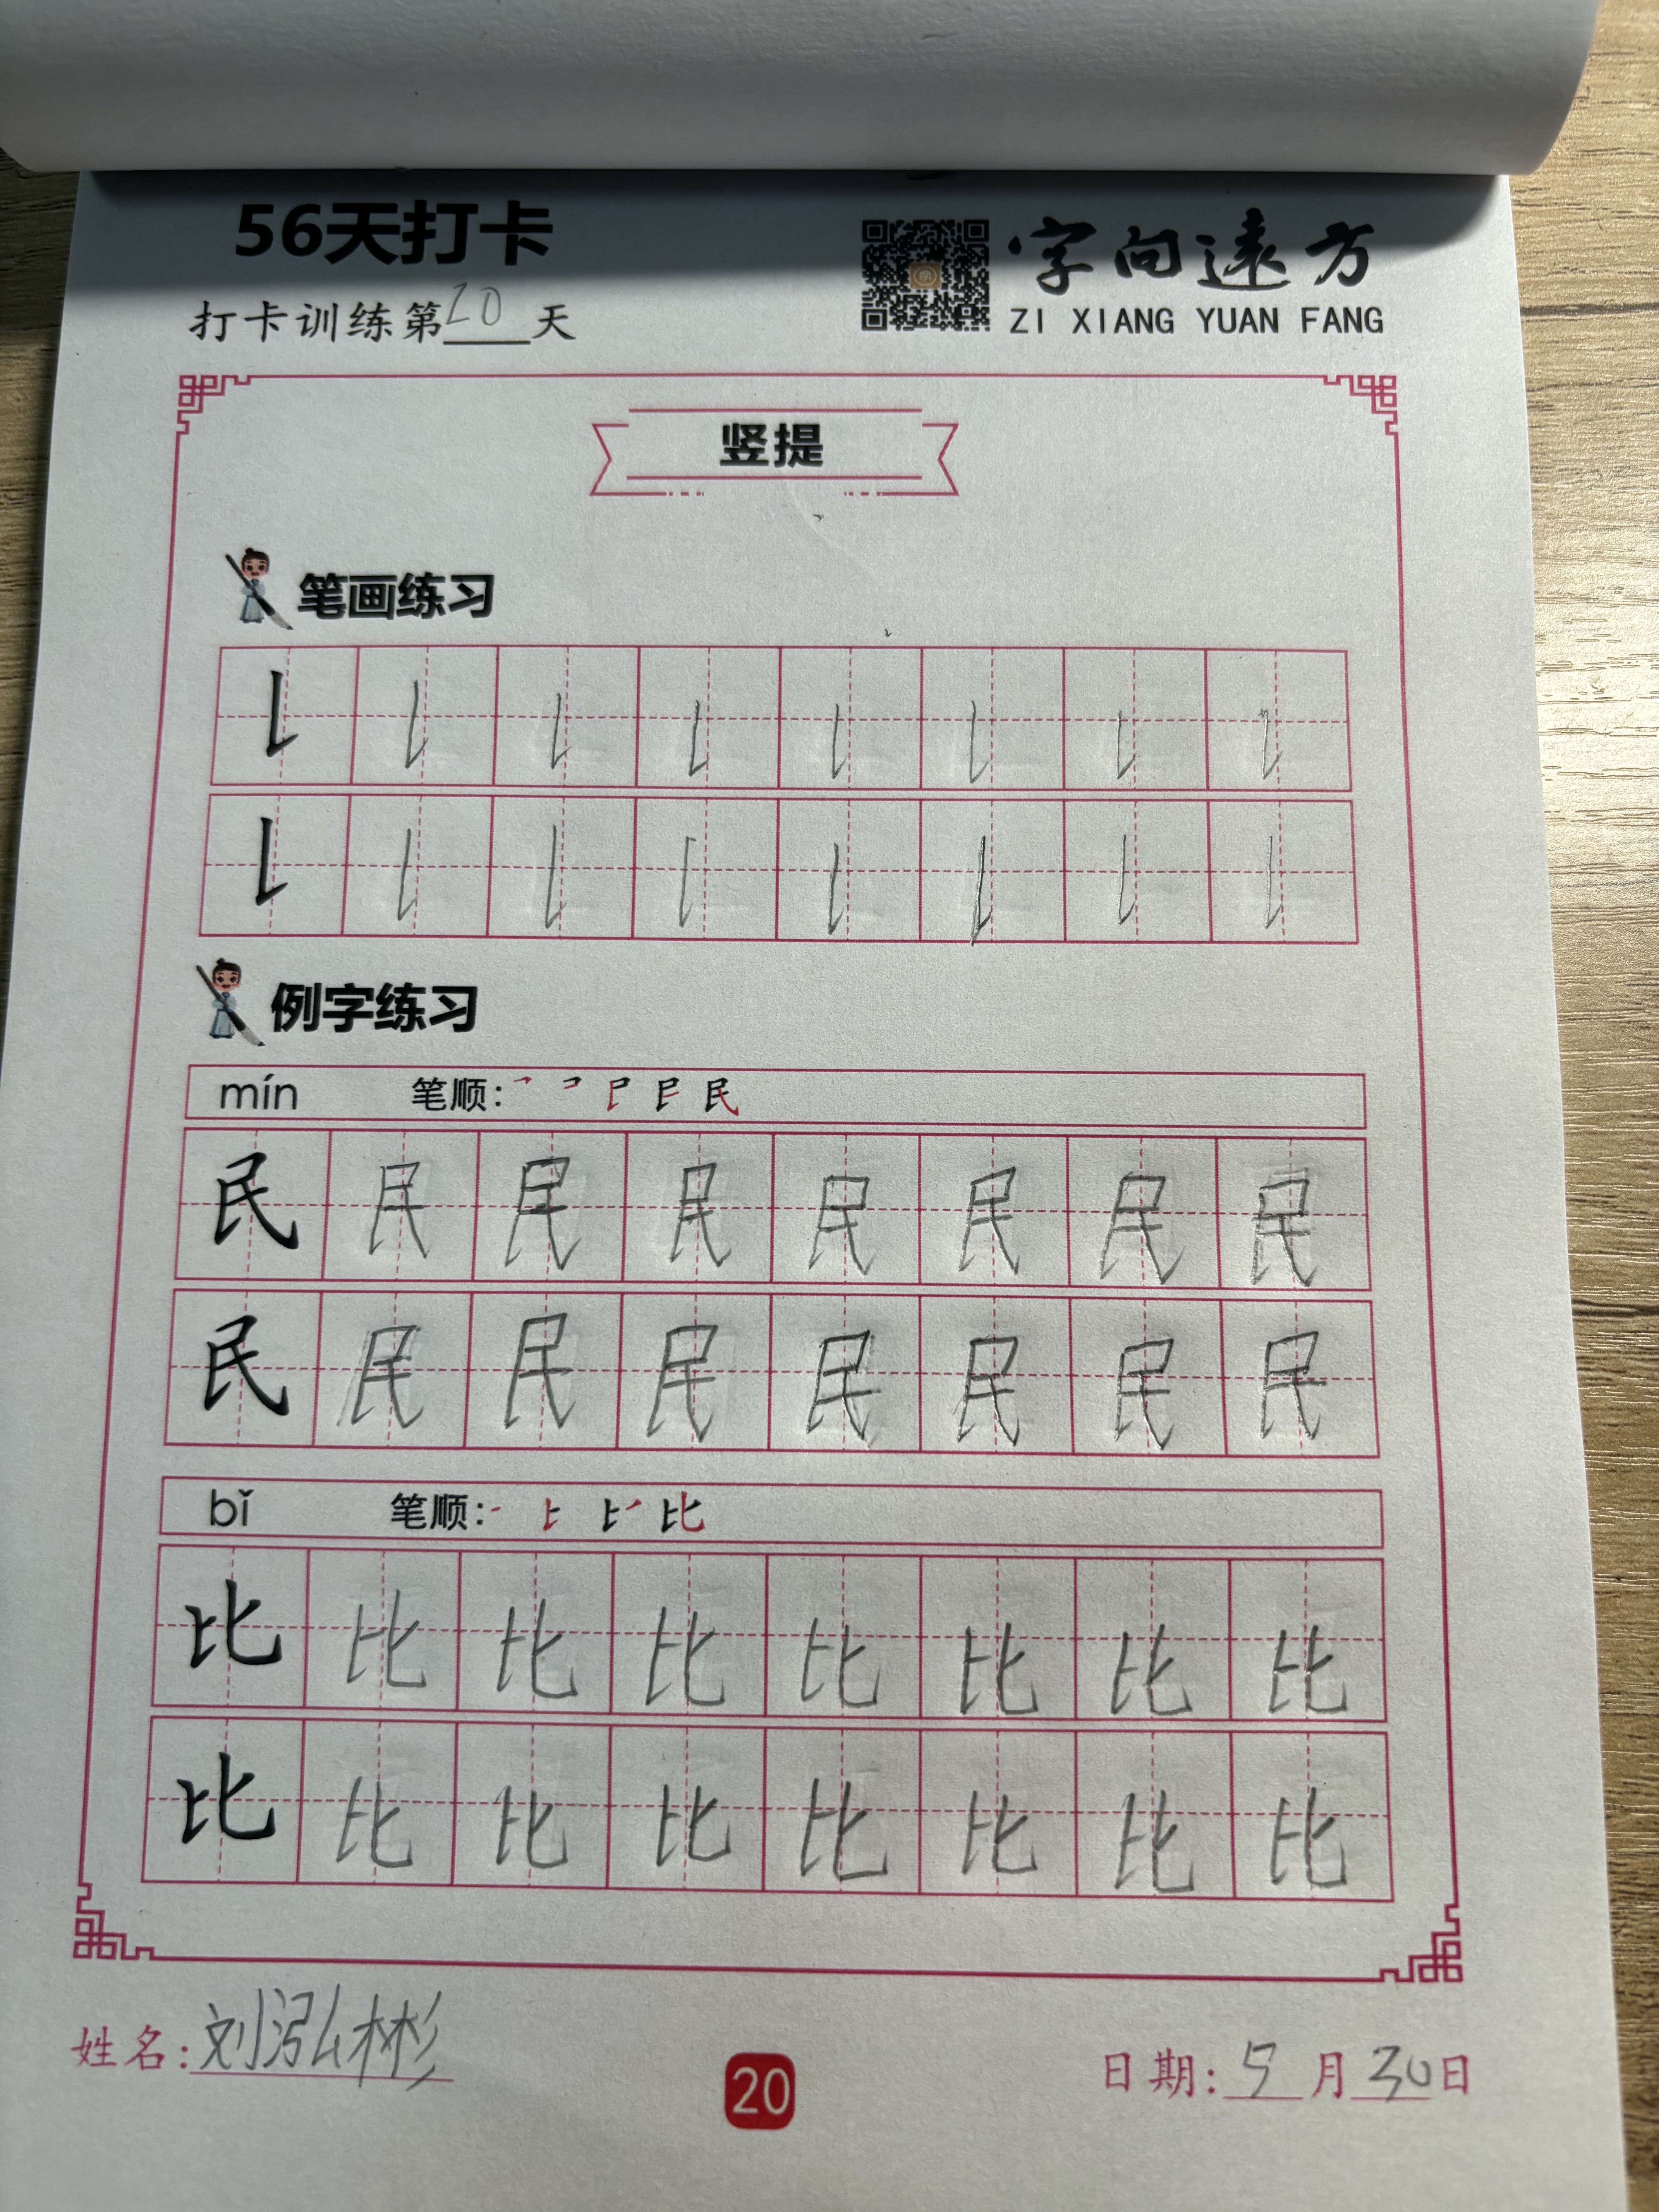 56天打卡
字向遠方
打卡训练第20天
ZI XIANG YUAN FANG
竖提
笔画练习
例字练习
mín 笔顺:
民 民 民 民 民 民 民 民
民 民 民 民 民 民 民 民
bǐ 笔顺:
比 比 比 比 比 比 比 比
比 比 比 比 比 比 比 比
姓名:刘泓彬
20
日期:5月30日